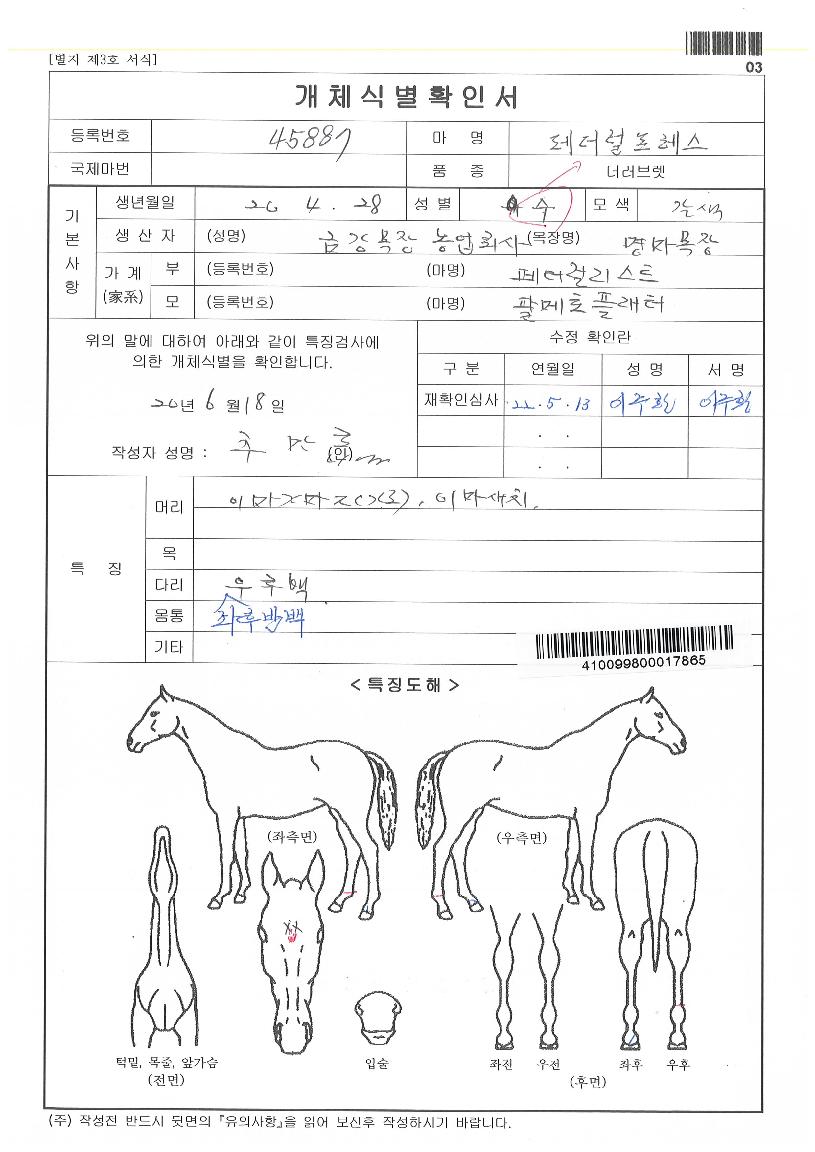 [별지 제3호 서식]
03
개체식별확인서
등록번호 45887 마 명 페더럴프레스
국제마번 품 종 너러브렛
기본사항
생년월일 20 4 . 28 성별 수 모색 갈색
생산자 (성명) 금강목장 농업회사 (목장명) 명마목장
가계 (家系) 부 (등록번호) (마명) 페더럴리스트
모 (등록번호) (마명) 팔메토플래터
위의 말에 대하여 아래와 같이 특징검사에
의한 개체식별을 확인합니다.
20년 6월 18일
작성자 성명 : 추 만 (인)
수정 확인란
구 분 연월일 성 명 서 명
재확인심사 22 . 5 . 13
. .
. .
특 징
머리 이마새치.
목
다리 우후백
몸통 좌후반백
기타
410099800017865
< 특징도해 >
(좌측면) (우측면)
턱밑, 목줄, 앞가슴 입술 좌진 우전 좌후 우후
(전면) (후면)
(주) 작성전 반드시 뒷면의 『유의사항』을 읽어 보신후 작성하시기 바랍니다.